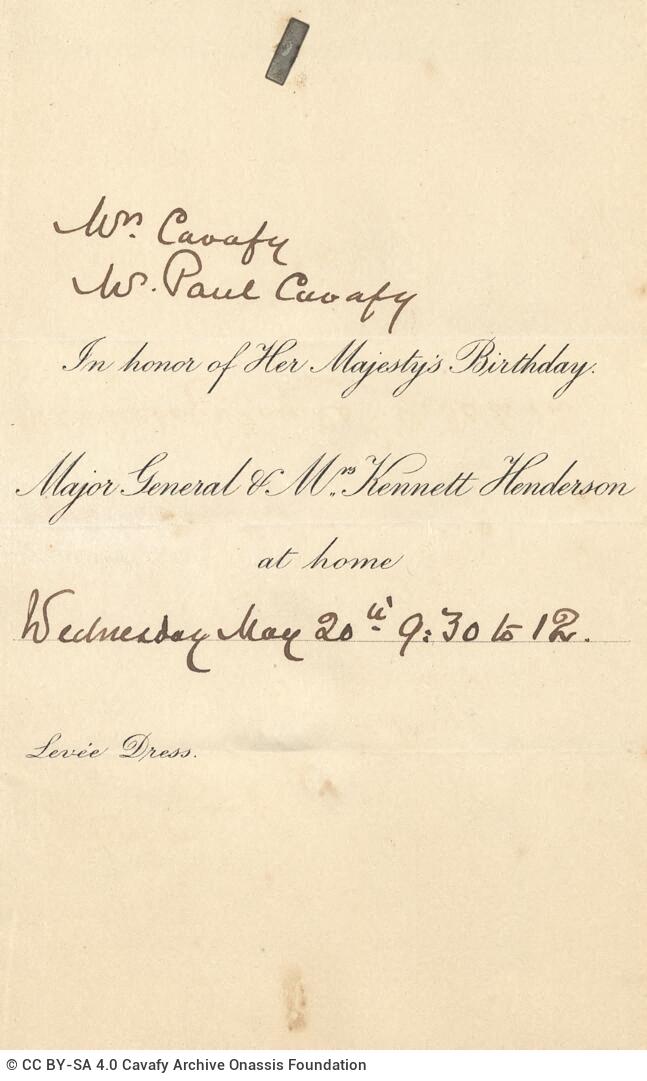 Mrs. Cavafy
Mr. Paul Cavafy
In honor of Her Majesty's Birthday.
Major General & Mrs Kennett Henderson
at home
Wednesday May 20th 9:30 to 12.
Levée Dress.
© CC BY-SA 4.0 Cavafy Archive Onassis Foundation